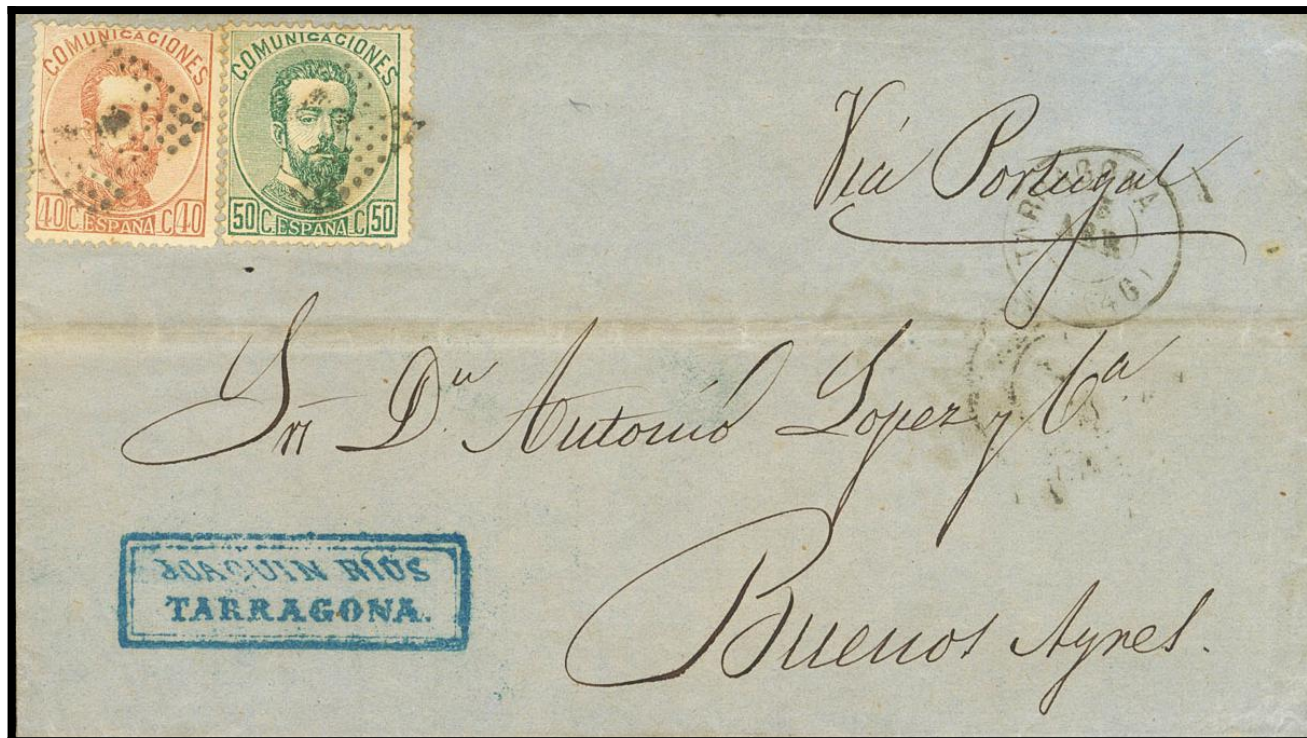 COMUNICACIONES
40 C. ESPAÑA C 40
COMUNICACIONES
50 C. ESPAÑA C 50
Via Portugal
TARRAGONA
ABR
(46)
Sr. Dn. Antonio Lopez y Ca.
JOAQUIN RIUS
TARRAGONA.
Buenos Ayres.